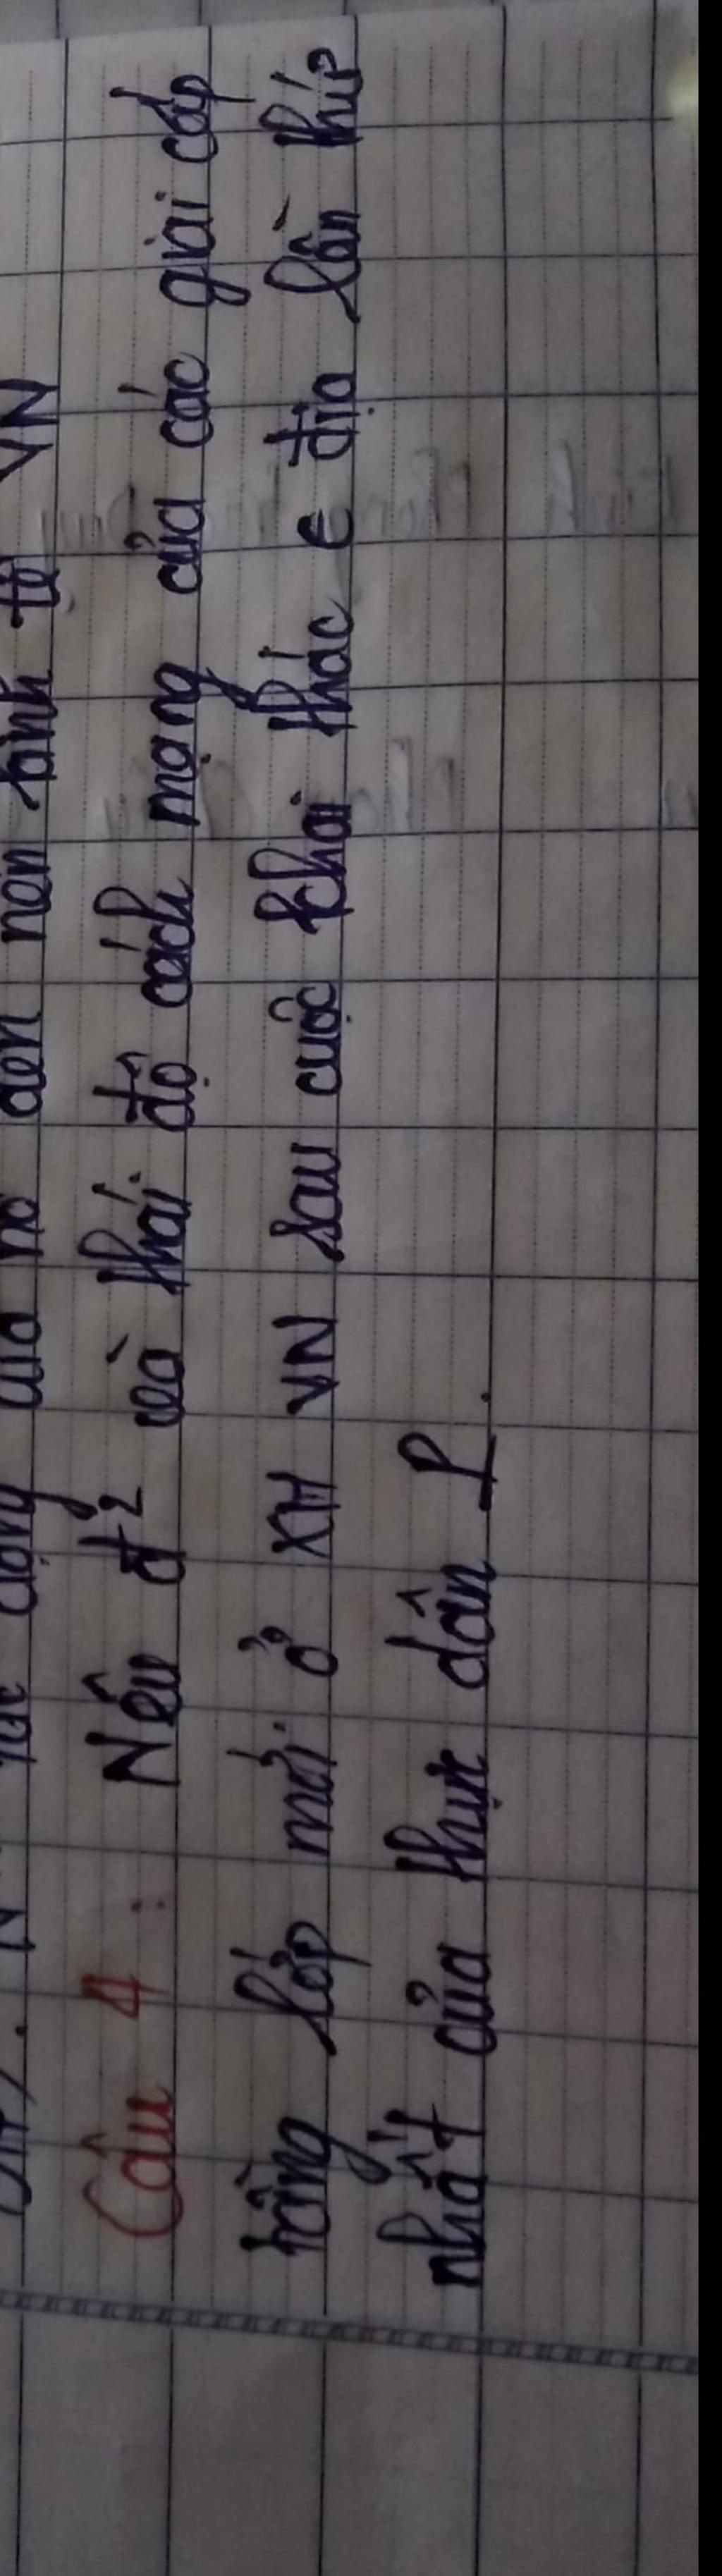 nền kinh tế VN
Câu 4: Nêu đ² và thái độ cách mạng của các giai cấp
tầng lớp mới ở XH VN sau cuộc khai thác e địa lần thứ
nhất của thực dân P.